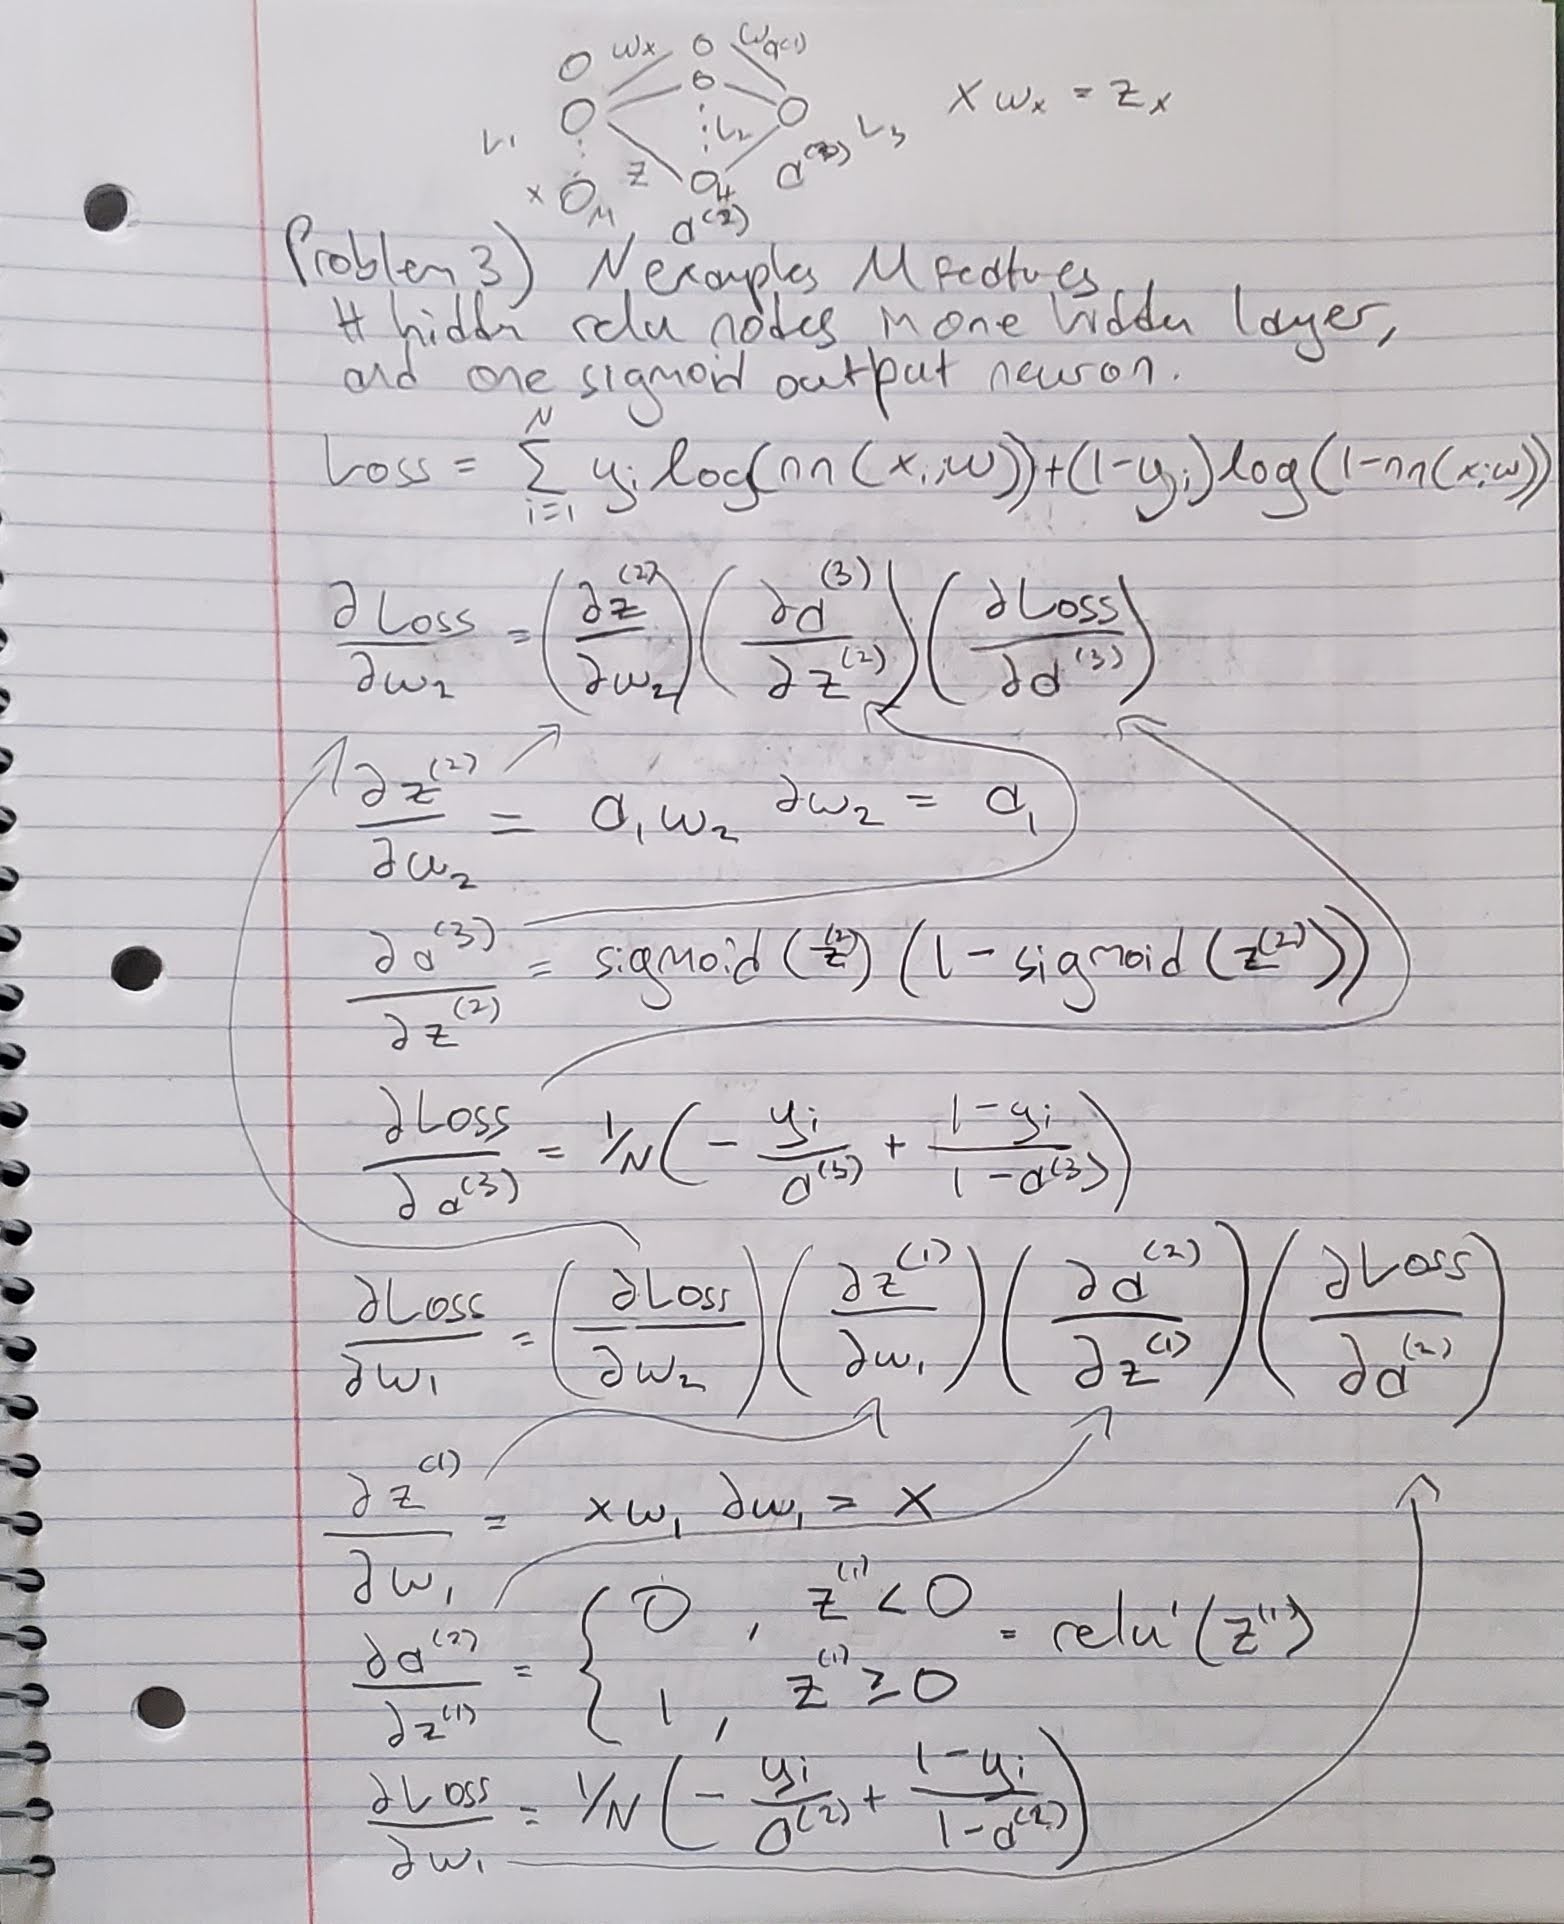 O Wx O Wa(1)
O O O X Wx = Zx
L1 L2 a(3) L3
x O M Z O H
a(2)
Problem 3) N examples M features
H hidden relu nodes in one hidden layer,
and one sigmoid output neuron.
Loss = Σ_{i=1}^{N} yi log(nn(xi;w))+(1-yi)log(1-nn(x;w))
∂Loss/∂w2 = (∂z^(2)/∂w2)(∂a^(3)/∂z^(2))(∂Loss/∂a^(3))
∂z^(2)/∂w2 = a1w2 ∂w2 = a1
∂a^(3)/∂z^(2) = sigmoid(z^(2))(1-sigmoid(z^(2)))
∂Loss/∂a^(3) = 1/N(-yi/a^(3) + (1-yi)/(1-a^(3)))
∂Loss/∂w1 = (∂Loss/∂w2)(∂z^(1)/∂w1)(∂a^(2)/∂z^(1))(∂Loss/∂a^(2))
∂z^(1)/∂w1 = xw1 ∂w1 = x
∂a^(2)/∂z^(1) = { 0, z^(1) < 0
1, z^(1) ≥ 0 = relu'(z^(1))
∂Loss/∂w1 = 1/N(-yi/a^(2) + (1-yi)/(1-a^(2)))